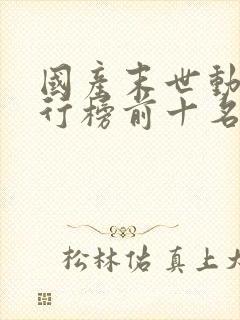 國產末世動
行榜前十名
松林佑 真上大